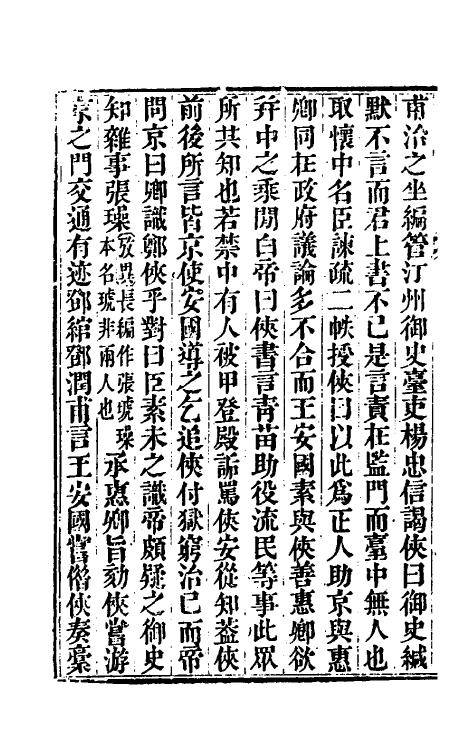 甫治之坐編管汀州御史臺吏楊忠信謁俠曰御史緘
默不言而君上書不已是言責在監門而臺中無人也
取懷中名臣諫疏二帙授俠曰以此爲正人助京與惠
卿同在政府議論多不合而王安國素與俠善惠卿欲
幷中之乘閒白帝曰俠書言靑苗助役流民等事此眾
所共知也若禁中有人被甲登殿詬罵俠安從知蓋俠
前後所言皆京使安國導之乞追俠付獄窮治已而帝
問京曰卿識鄭俠乎對曰臣素未之識帝頗疑之御史
知雜事張璪攷異長編作張琥璪本名琥非兩人也承惠卿旨劾俠嘗游
京之門交通有迹鄧綰鄧潤甫言王安國嘗借俠奏稾